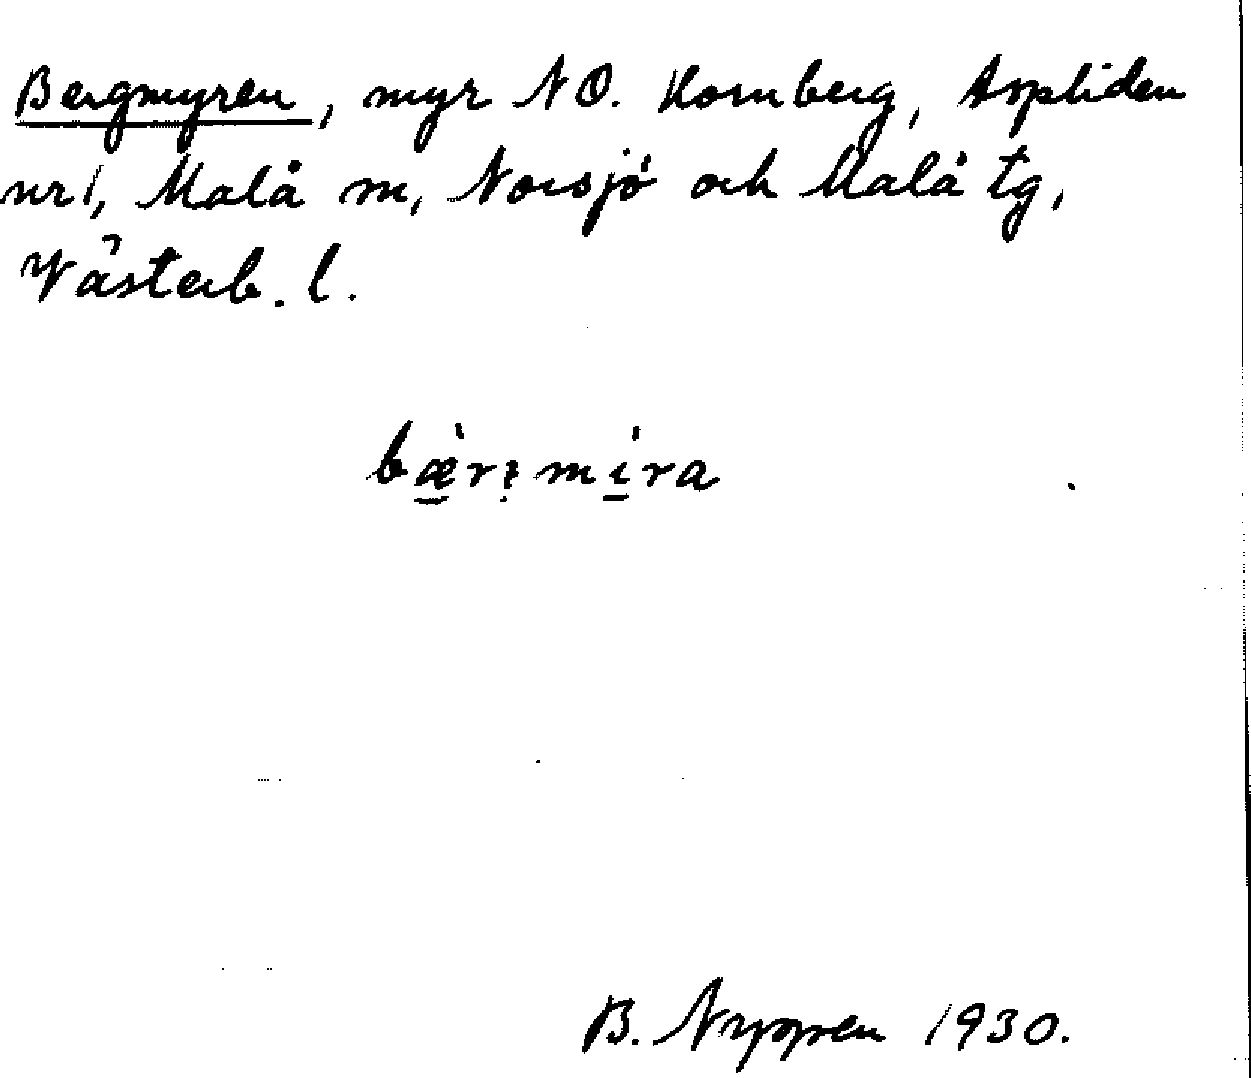 Bergmyren, myr NO. Kornberg, Aspliden
nr 1, Malå m, Norsjö och Malå tg,
Västerb. l.
bæ̀rmíra
B. Nygren 1930.